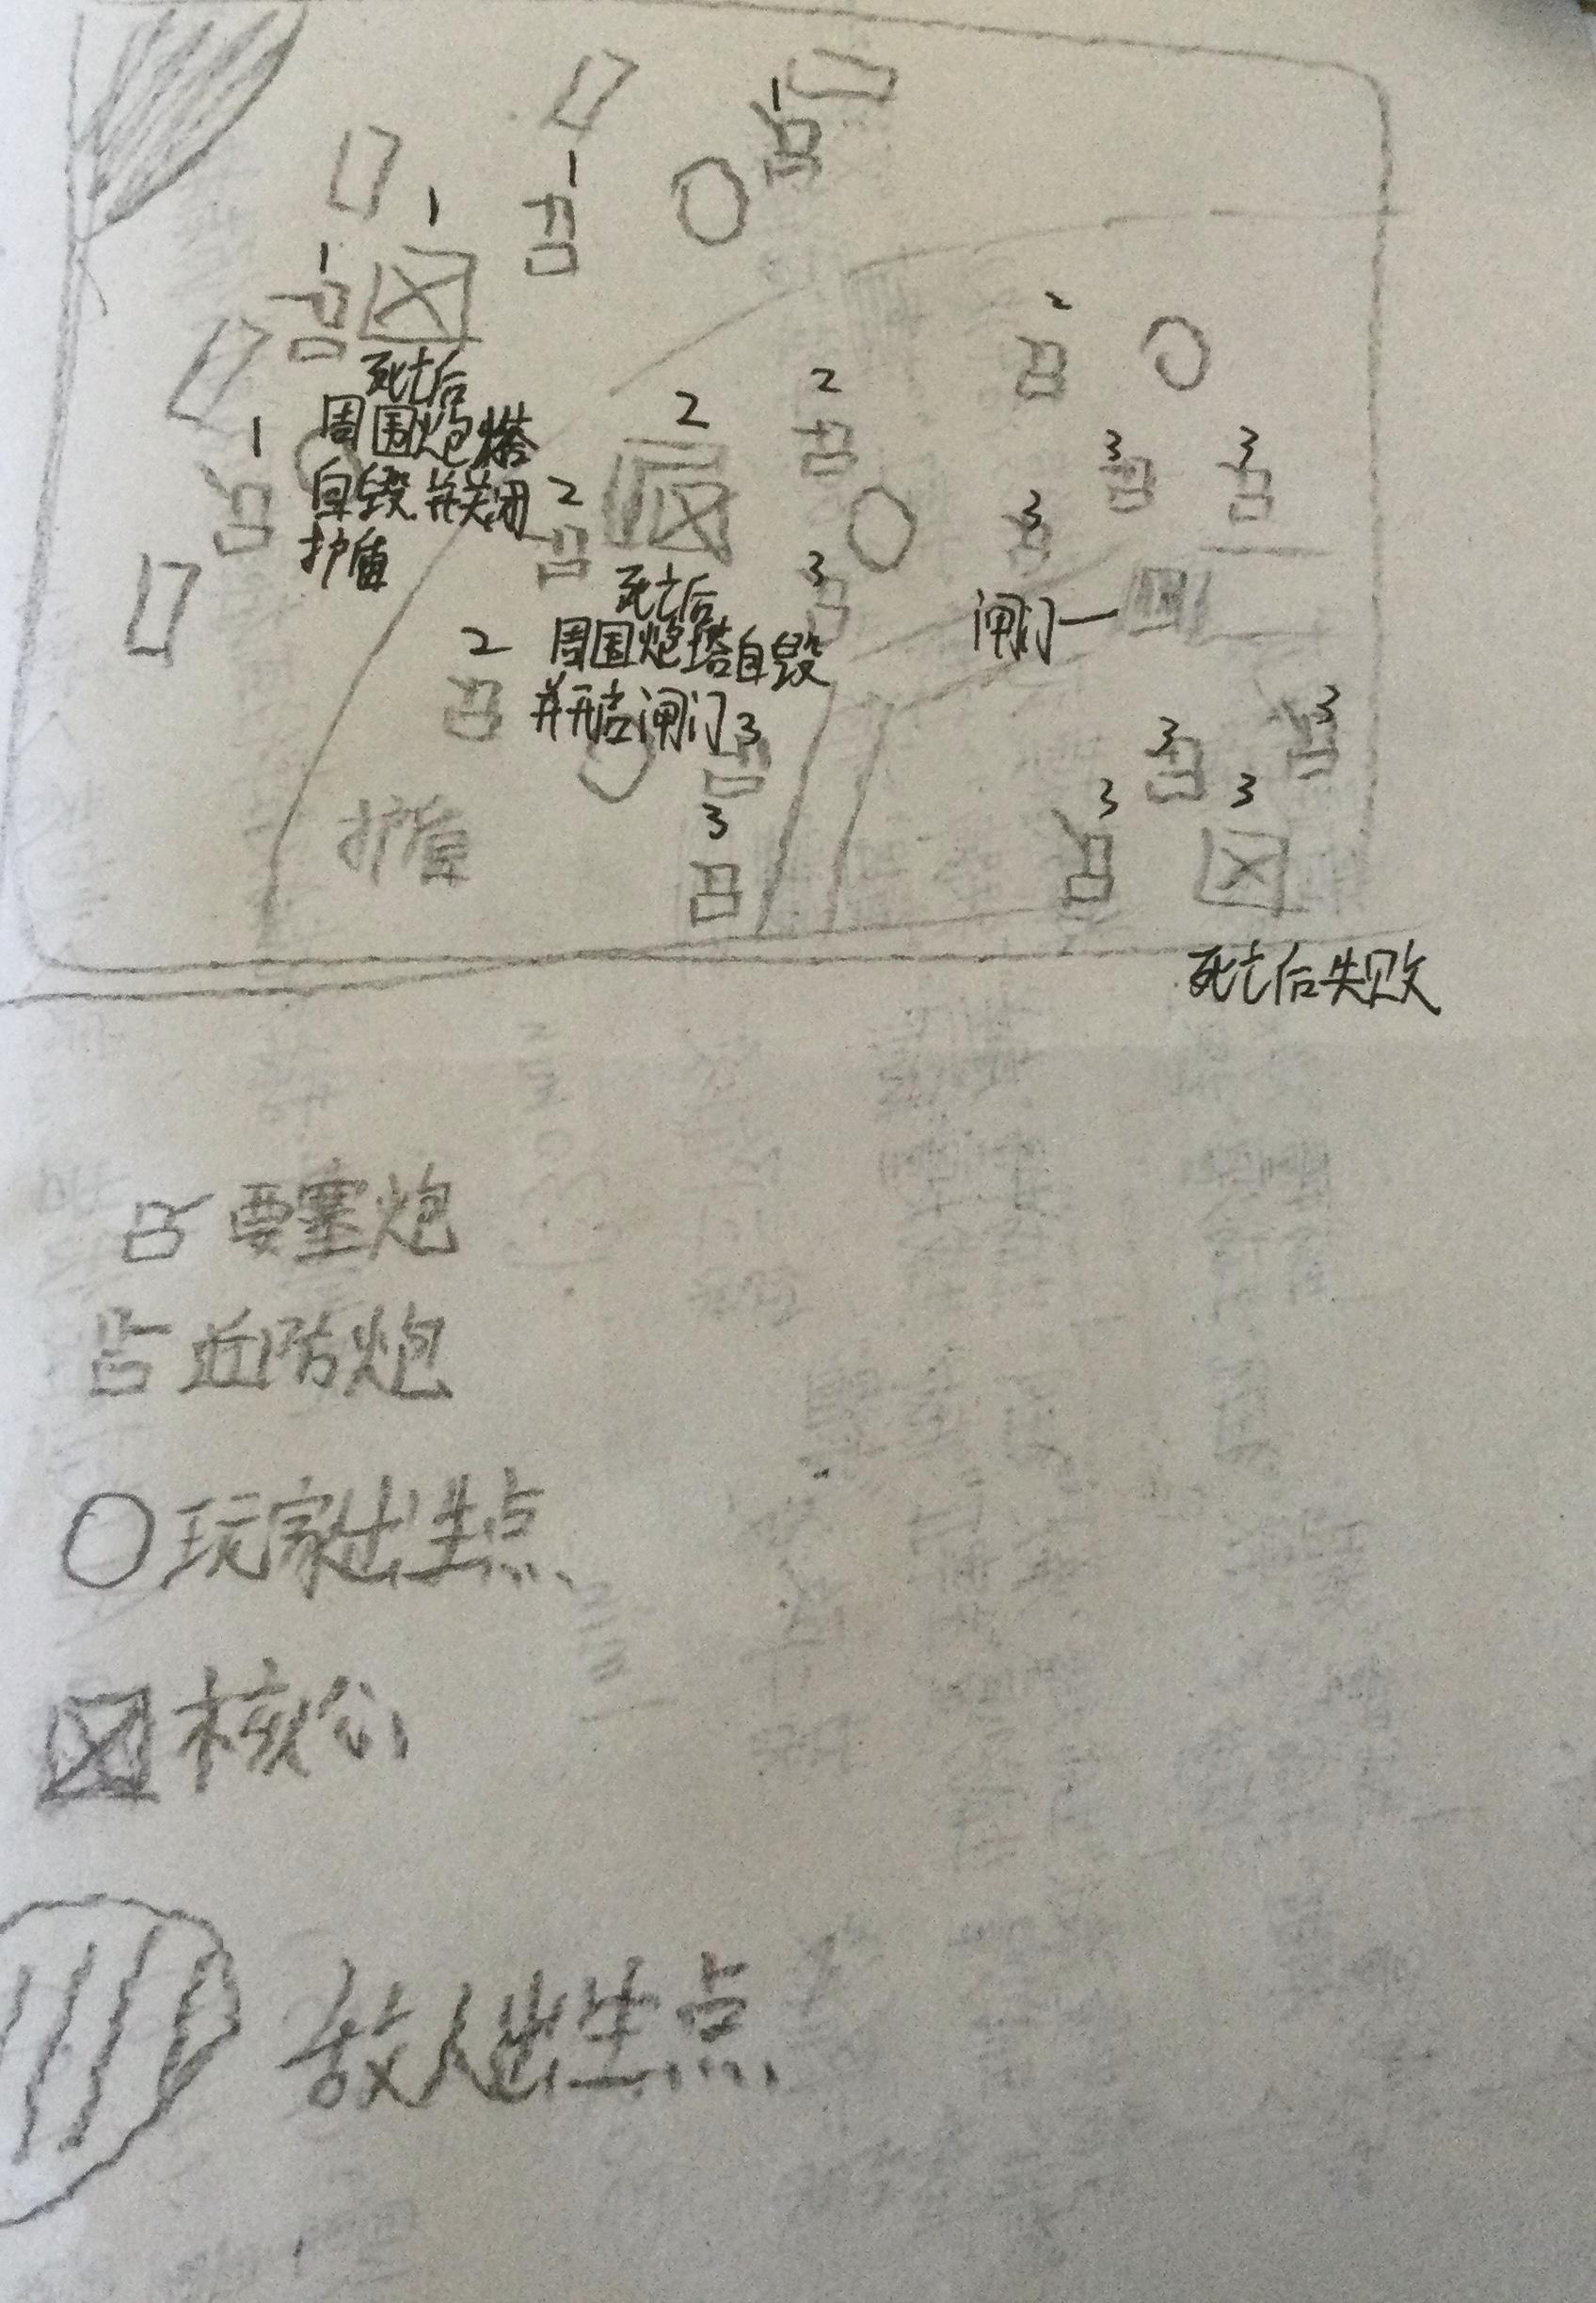 1
1
1
1
死亡后
周围炮塔
自毁并关闭
护盾
1
2
2
2
2
死亡后
周围炮塔自毁
并开启闸门
2
3
3
3
3
3
3
闸门一
护盾
3
3
3
3
3
死亡后失败
要塞炮
近防炮
玩家出生点
核心
敌人出生点